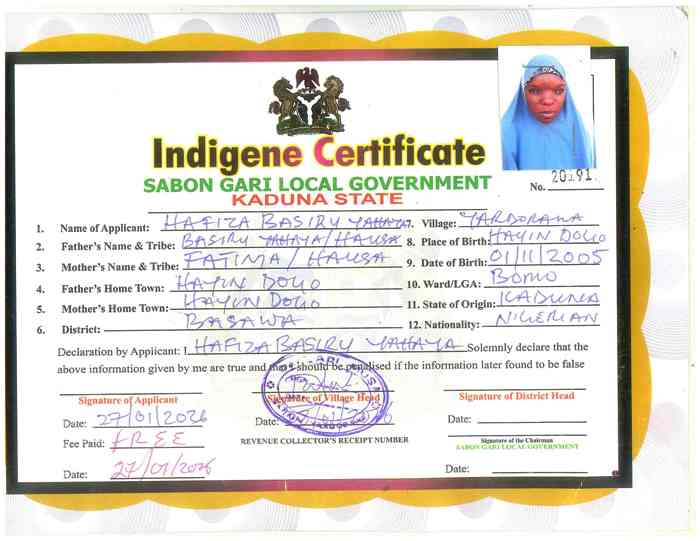 Indigene Certificate
SABON GARI LOCAL GOVERNMENT
KADUNA STATE
No. 20191
1. Name of Applicant: HAFIZA BASIRU YAHAYA
7. Village: YARDORAWA
2. Father's Name & Tribe: BASIRU YAHAYA/HAUSA
8. Place of Birth: HAYIN DOGO
3. Mother's Name & Tribe: FATIMA/HAUSA
9. Date of Birth: 01/11/2005
4. Father's Home Town: HAYIN DOGO
10. Ward/LGA: BOMO
5. Mother's Home Town: HAYIN DOGO
11. State of Origin: KADUNA
6. District: BASAWA
12. Nationality: NIGERIAN
Declaration by Applicant: I HAFIZA BASIRU YAHAYA Solemnly declare that the
above information given by me are true and that I should be penalised if the information later found to be false
Signature of Applicant
Signature of Village Head
Signature of District Head
Date: 27/01/2026
Date: /01/2026
Date:
Fee Paid: FREE
REVENUE COLLECTOR'S RECEIPT NUMBER
Signature of the Chairman
SABON GARI LOCAL GOVERNMENT
Date: 27/01/2026
Date: